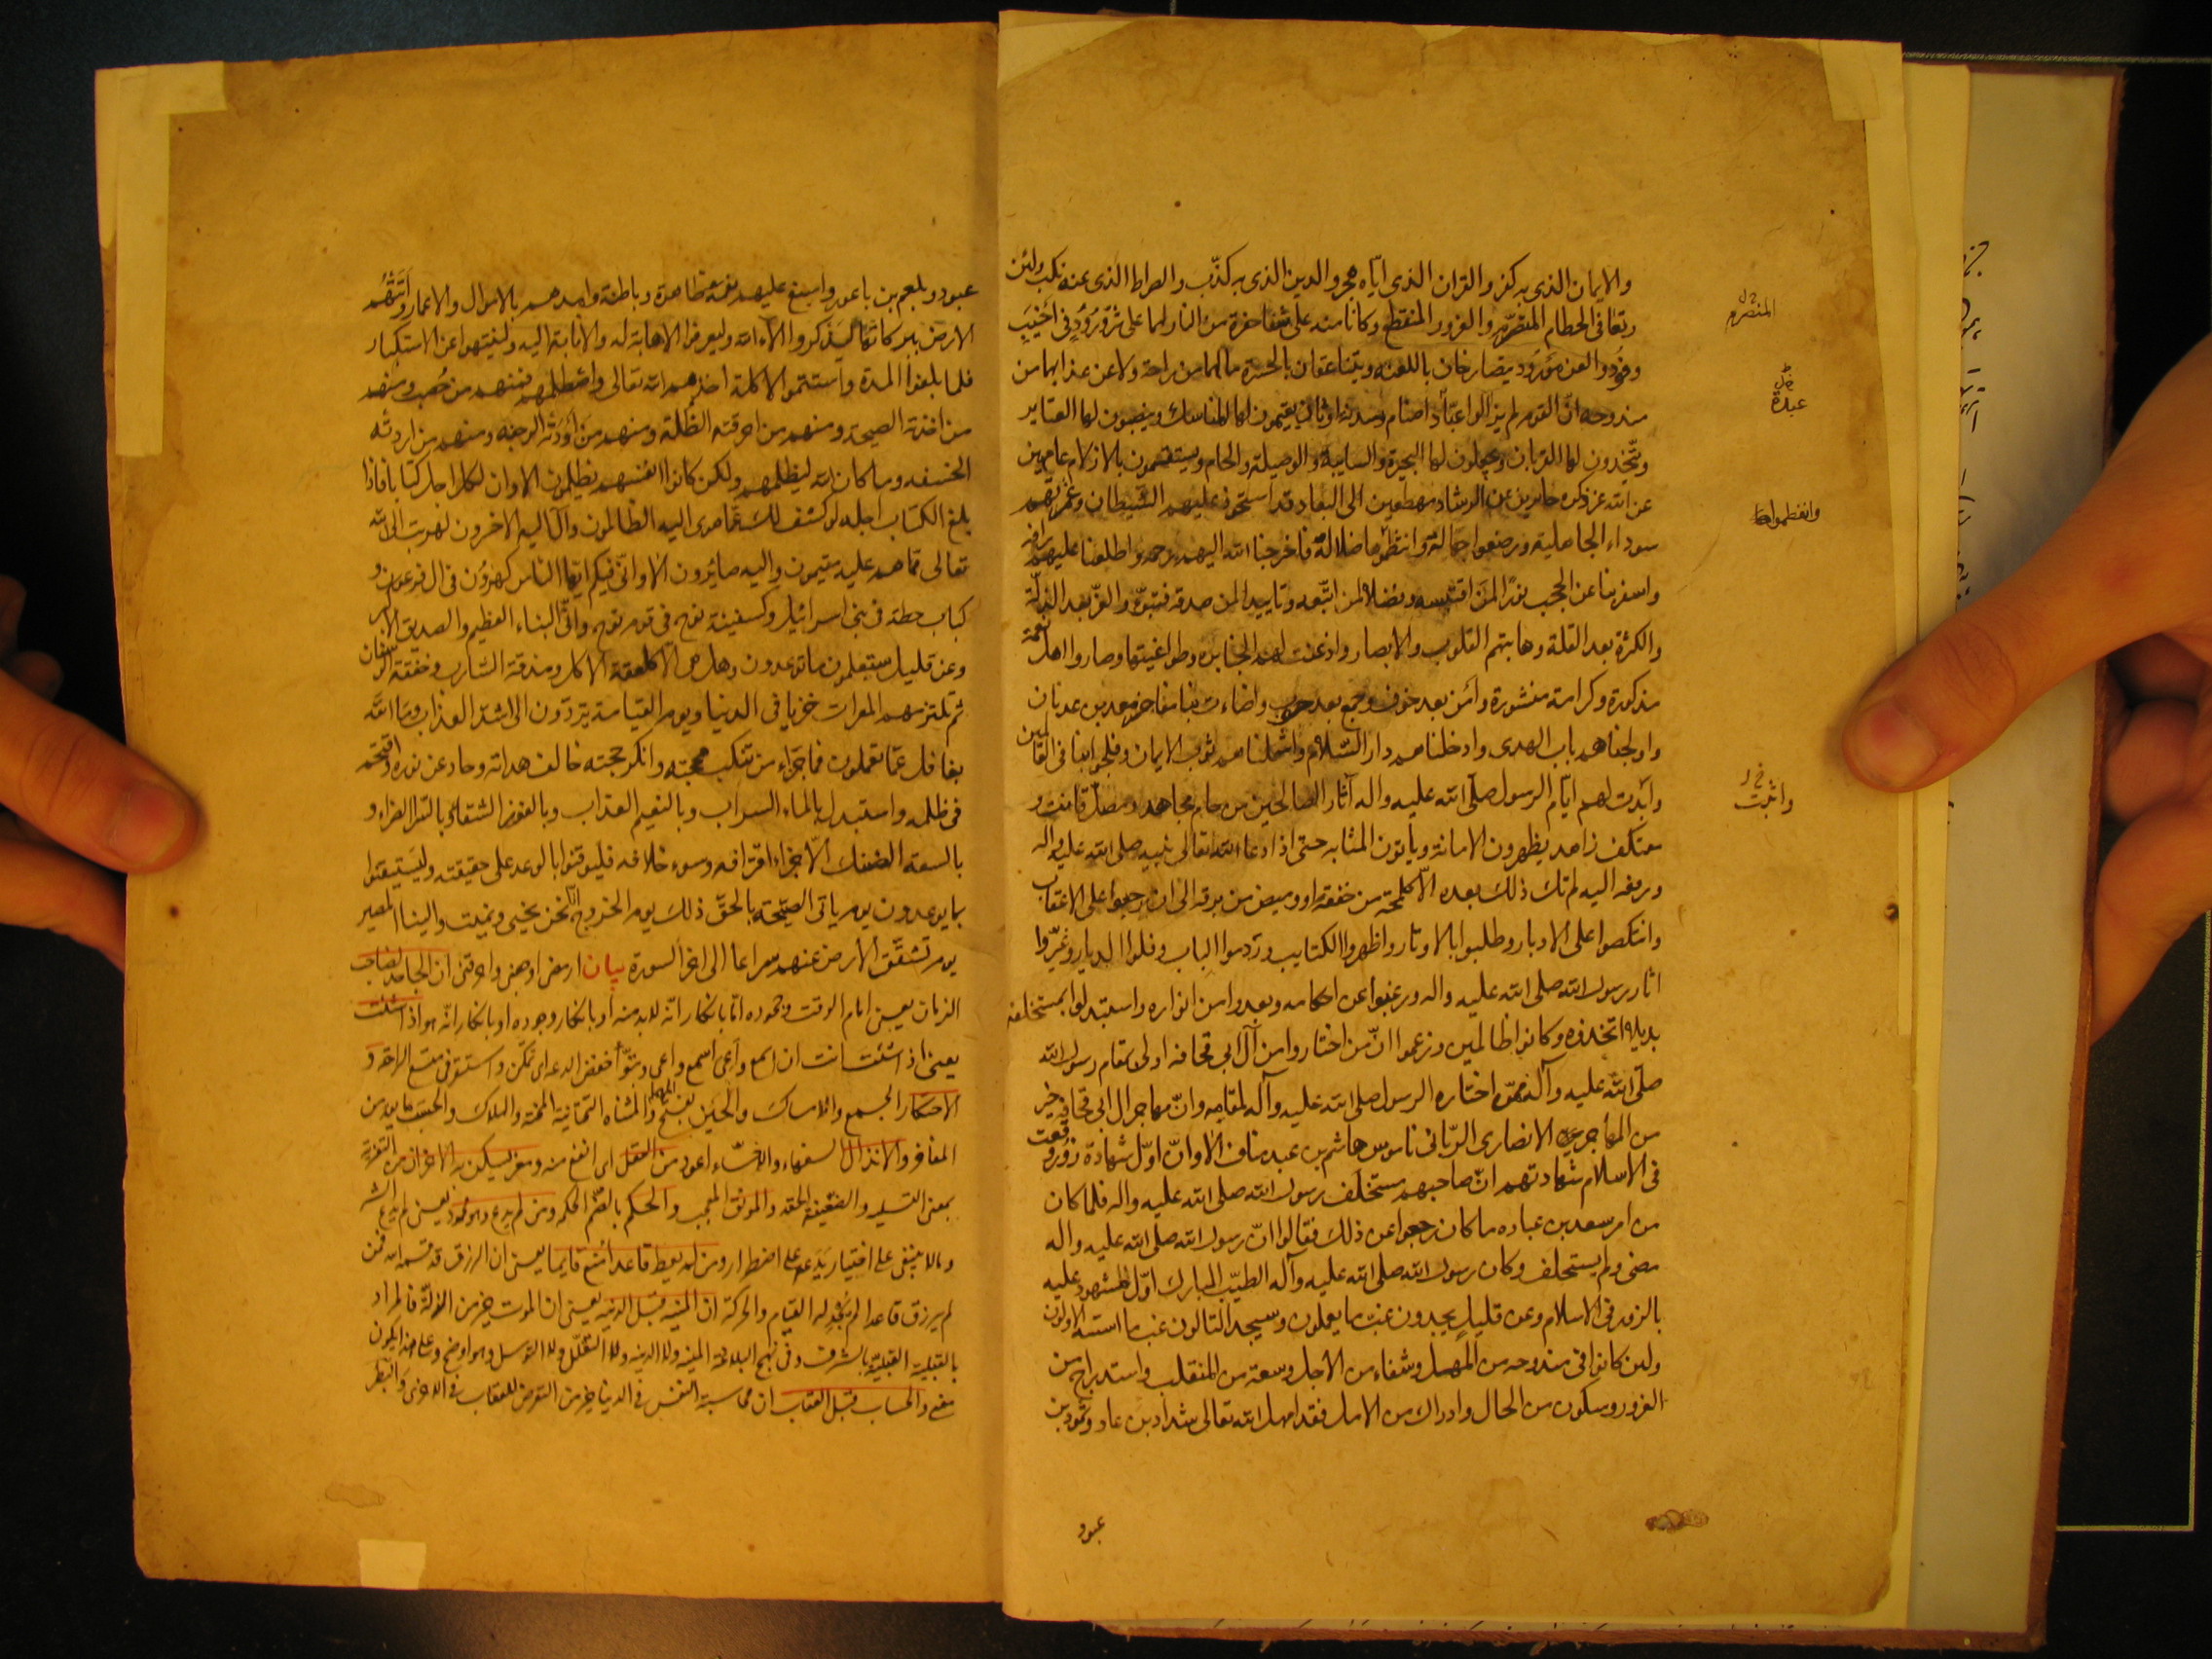 والايمان الذى به كفر والقران الذى اياه هجر والدين الذى به كذّب والصراط الذى عنه نكب ولئن
رتعا فى الحطام المنصرم والغرور المنقطع وكانا منه على شفا حفرة من النار لهما على شر ورود فى اخيب
وفود والعن مورود يتصارخان باللعنه ويتناعقان بالحسرة ما لهما من راحة ولا عن عذابهما من
مندوحه انّ القوم لم يزالوا عبّاد اصنام وسدنة اوثان يقيمون لها المناسك وينصبون لها العتاير
ويتّخذون لها القربان ويجعلون لها البحيرة والسايبة والوصيلة والحام ويستقسمون بالازلام عامهين
عن الله عز ذكره حايرين عن الرشاد مهطعين الى البعاد قد استحوذ عليهم الشيطان وغمرتهم
سوداء الجاهلية ورضعوا جهالة وانفطموا ضلالة فاخرجنا الله اليهم رحمه واطلعنا عليهم رافه
واسفر بنا عن الحجب نورًا لمن اقتبسه وفضلا لمن اتّبعه وتاييدا لمن صدقه فتبوّؤا العزّ بعد الذلّة
والكثرة بعد القلة وهابتهم القلوب والابصار واذعنت لهم الجبابره وطواغيتها وصاروا اهل نعمة
مذكورة وكرامة منشورة وامن بعد خوف وجمع بعد حوب واضاءت بنا مفاخر معد بن عدنان
واولجناهم باب الهدى وادخلناهم دار السّلام واشملناهم ثوب الايمان وفلجوا بنا فى العالمين
وابدت لهم ايّام الرسول صلّى الله عليه واله آثار الصالحين من حام مجاهد ومصلّ قانت و
معتكف زاهد يظهرون الامانة وياتون المثابه حتى اذا دعا الله تعالى نبيه صلى الله عليه واله
ورفعه اليه لم تك ذلك بعده الّا كلمحة من خفقة او وميض من برقه الى ان رجعوا على الاعقاب
وانتكصوا على الادبار وطلبوا بالاوتار واظهروا الكتايب وردموا الباب وفلوا الديار وغيّروا
اثار رسول الله صلى الله عليه واله ورغبوا عن احكامه وبعدوا من انواره واستبدلوا بمستخلفه
بديلا اتخذوه وكانوا ظالمين وزعموا انّ من اختاروا من آل ابى قحافه اولى بمقام رسول الله
صلّى الله عليه وآله ممن اختاره الرسول صلى الله عليه وآله لمقامه وانّ مهاجر ال ابى قحافه خير
من المهاجرى الانصارى الربّانى ناموس هاشم بن عبد مناف الا وانّ اوّل شهادة زور وقعت
فى الاسلام شهادتهم انّ صاحبهم مستخلف رسول الله صلى الله عليه واله فلما كان
من امر سعد بن عباده ما كان رجعوا عن ذلك فقالوا انّ رسول الله صلى الله عليه واله
مضى ولم يستخلف وكان رسول الله صلى الله عليه وآله الطيّب المبارك اوّل المشهود عليه
بالزور فى الاسلام وعن قليل يجدون غب ما يعملون وسيجد التالون غب ما اسسه الاولون
ولئن كانوا فى مندوحه من المهل وشفاء من الاجل وسعة من المنقلب واستدراج من
الغرور وسكون من الحال وادراك من الامل فقد امهل الله تعالى شداد بن عاد وثمود بن
عبود
المنصرم خ ل
عبدة خ ل
وانفطموا
واثبت خ ل
عبود وبلعم بن باعور واسبغ عليهم نعمه ظاهرة وباطنة وامدهم بالاموال والاعمار واتتهم
الارض ببركاتها ليذكروا الاء الله وليعرفوا الاهابة له والانابة اليه ولينتهوا عن الاستكبار
فلما بلغوا المدة واستتموا الاكلة اخذهم الله تعالى واصطلمهم فمنهم من حصب ومنهم
من اخذته الصيحة ومنهم من احرقته الظلة ومنهم من اودته الرجفه ومنهم من اردته
الخسفه وما كان الله ليظلمهم ولكن كانوا انفسهم يظلمون الا وان لكل اجل كتابا فاذا
بلغ الكتاب اجله لو كشف لك عما هوى اليه الظالمون وآل اليه الاخرون لهربت الى الله
تعالى مما هم عليه مقيمون واليه صائرون الا وانّى فيكم ايها الناس كهرون فى ال فرعون و
كباب حطة فى بنى اسرائيل وكسفينة نوح فى قوم نوح وانّى النباء العظيم والصديق الاكبر
وعن قليل ستعلمون ما توعدون وهل هى الا كلعقة الاكل ومذقة الشارب وخفقة الوسنان
ثم تلزمهم المعرات خزيا فى الدنيا ويوم القيامة يردّون الى اشدّ العذاب وما الله
بغافل عمّا تعملون فما جزاء من تنكب محجته وانكر حجته وخالف هداته وحاد عن نوره واقتحم
فى ظلمه واستبدل بالماء السراب وبالنعيم العذاب وبالفوز الشقاء وبالسّراء الضراء و
بالسعة الضنك الّا جزاء اقترافه وسوء خلافه فليوقنوا بالوعد على حقيقته وليستيقنوا
بما يوعدون يوم ياتى الصيحة بالحقّ ذلك يوم الخروج انا نحن نحيى ونميت والينا المصير
يوم تشقّق الارض عنهم سراعا الى اخر السورة بيان ارمضى اوجعنى واحرقنى ان الجاحد لصاحب
الزمان يعنى امام الوقت وجحوده امّا بانكار انّه لا بد منه او بانكار وجوده او بانكار انّه هو اذا شئت
يعنى اذا شئت انت ان اسمع واعى اسمع واعى وتبوّأ خفض الدعه اى تمكّن واستقر فى متسع الراحة و
الاحتكار الجمع والامساك والحين بفتح المهملة والمثناه التحتانية المحنة والهلاك والحسب ما يعد من
المفاخر والانذال السفهاء والاخسّاء اعود من العقل اى انفع منه
بمعنى التسيير والضغينة الحقد والمونق المعجب والحكم بالضمّ الحكمه ومن لم يرع
ومالا ينبغى على اختيار
لم يرزق قاعدا لم يجد له القيام والحركة ان المنية قبل الدنيه يعنى ان الموت خير من الذلّة فالمراد
بالقبلية القبليّة بالشرف وفى نهج البلاغة المنيه ولا الدنيه ولا التقلّل ولا التوسل وهو اوضح
معنى والحساب قبل العقاب ان محاسبة النفس فى الدنيا خير من التعرض للعقاب فى الاخرى